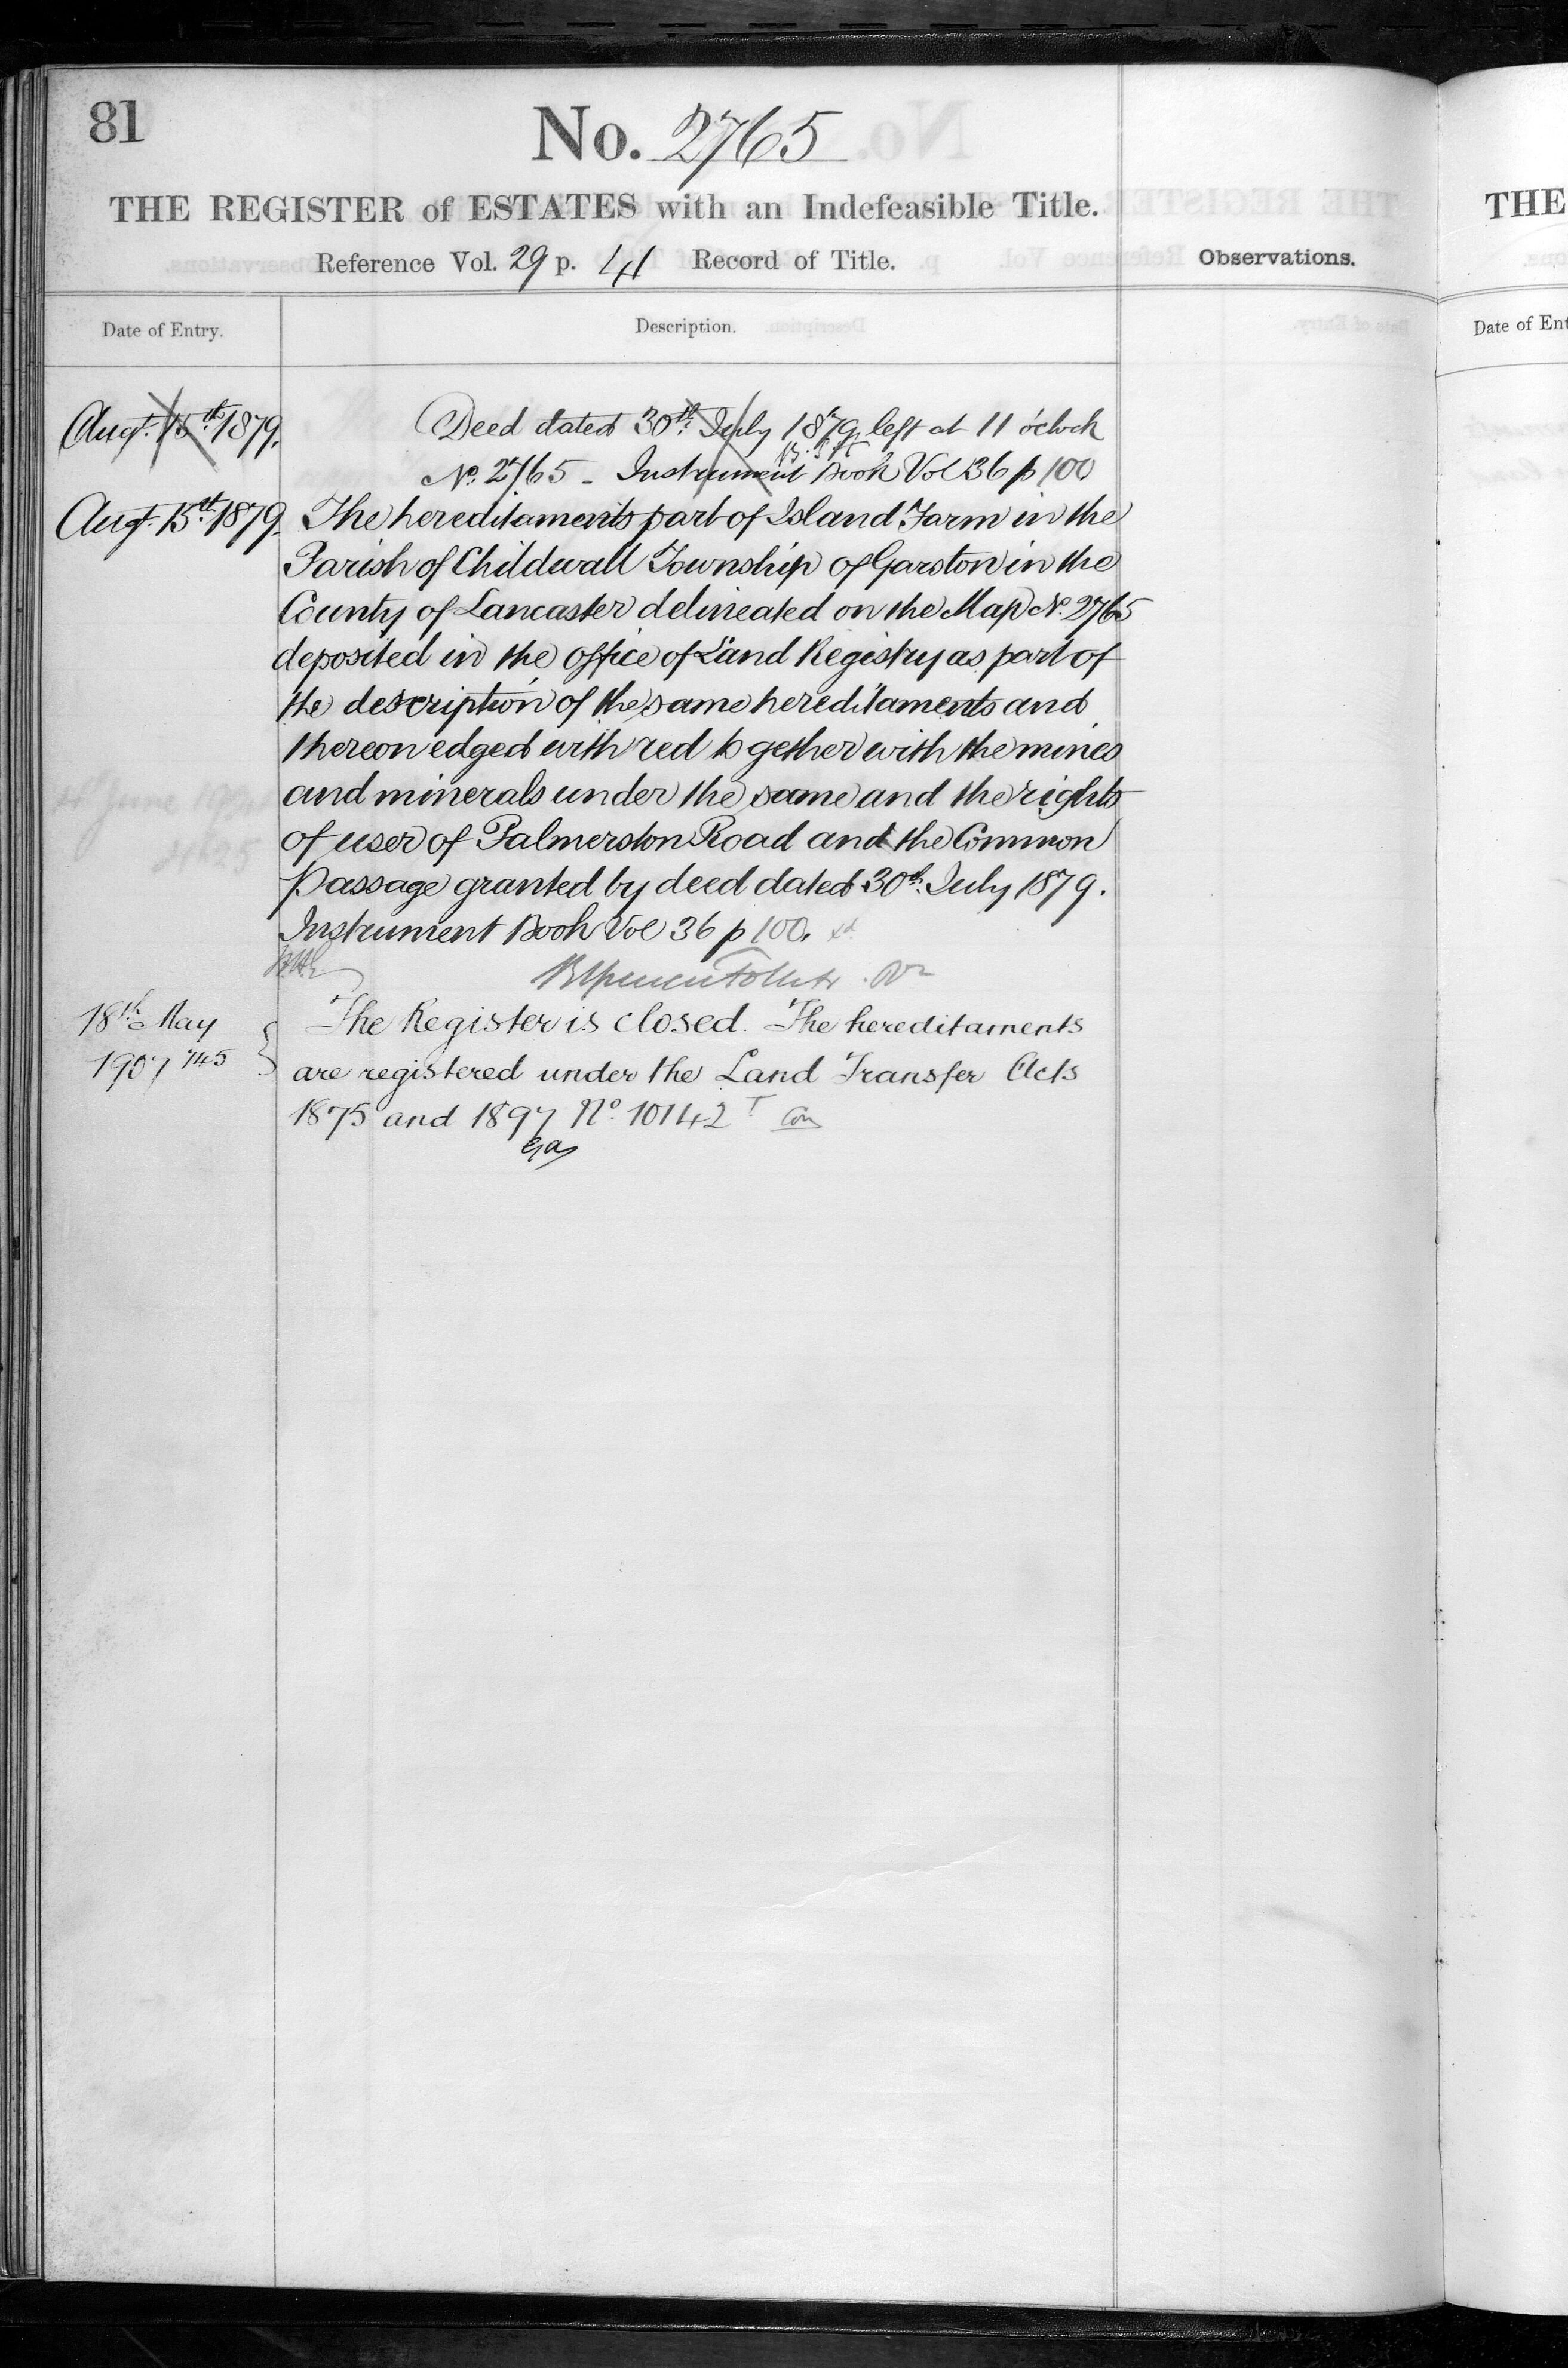 81
No. 2765
THE REGISTER of ESTATES with an Indefeasible Title.
Reference Vol. 29 p. 41 Record of Title.
Observations.
Date of Entry.
Description.
Augt. 15th 1879.
Deed dated 30th July 1879 left at 11 o'clock
No. 2765 - Instrument Book Vol 36 p 100
Augt. 15th 1879.
The hereditaments part of Island Farm in the
Parish of Childwall Township of Garston in the
County of Lancaster delineated on the Map No. 2765
deposited in the office of Land Registry as part of
the description of the same hereditaments and
thereon edged with red together with the mines
and minerals under the same and the rights
of user of Palmerston Road and the Common
Passage granted by deed dated 30th July 1879.
Instrument Book Vol 36 p 100.
18th May
1907 745
The Register is closed. The hereditaments
are registered under the Land Transfer Acts
1875 and 1897 No. 10142
THE
Date of Ent